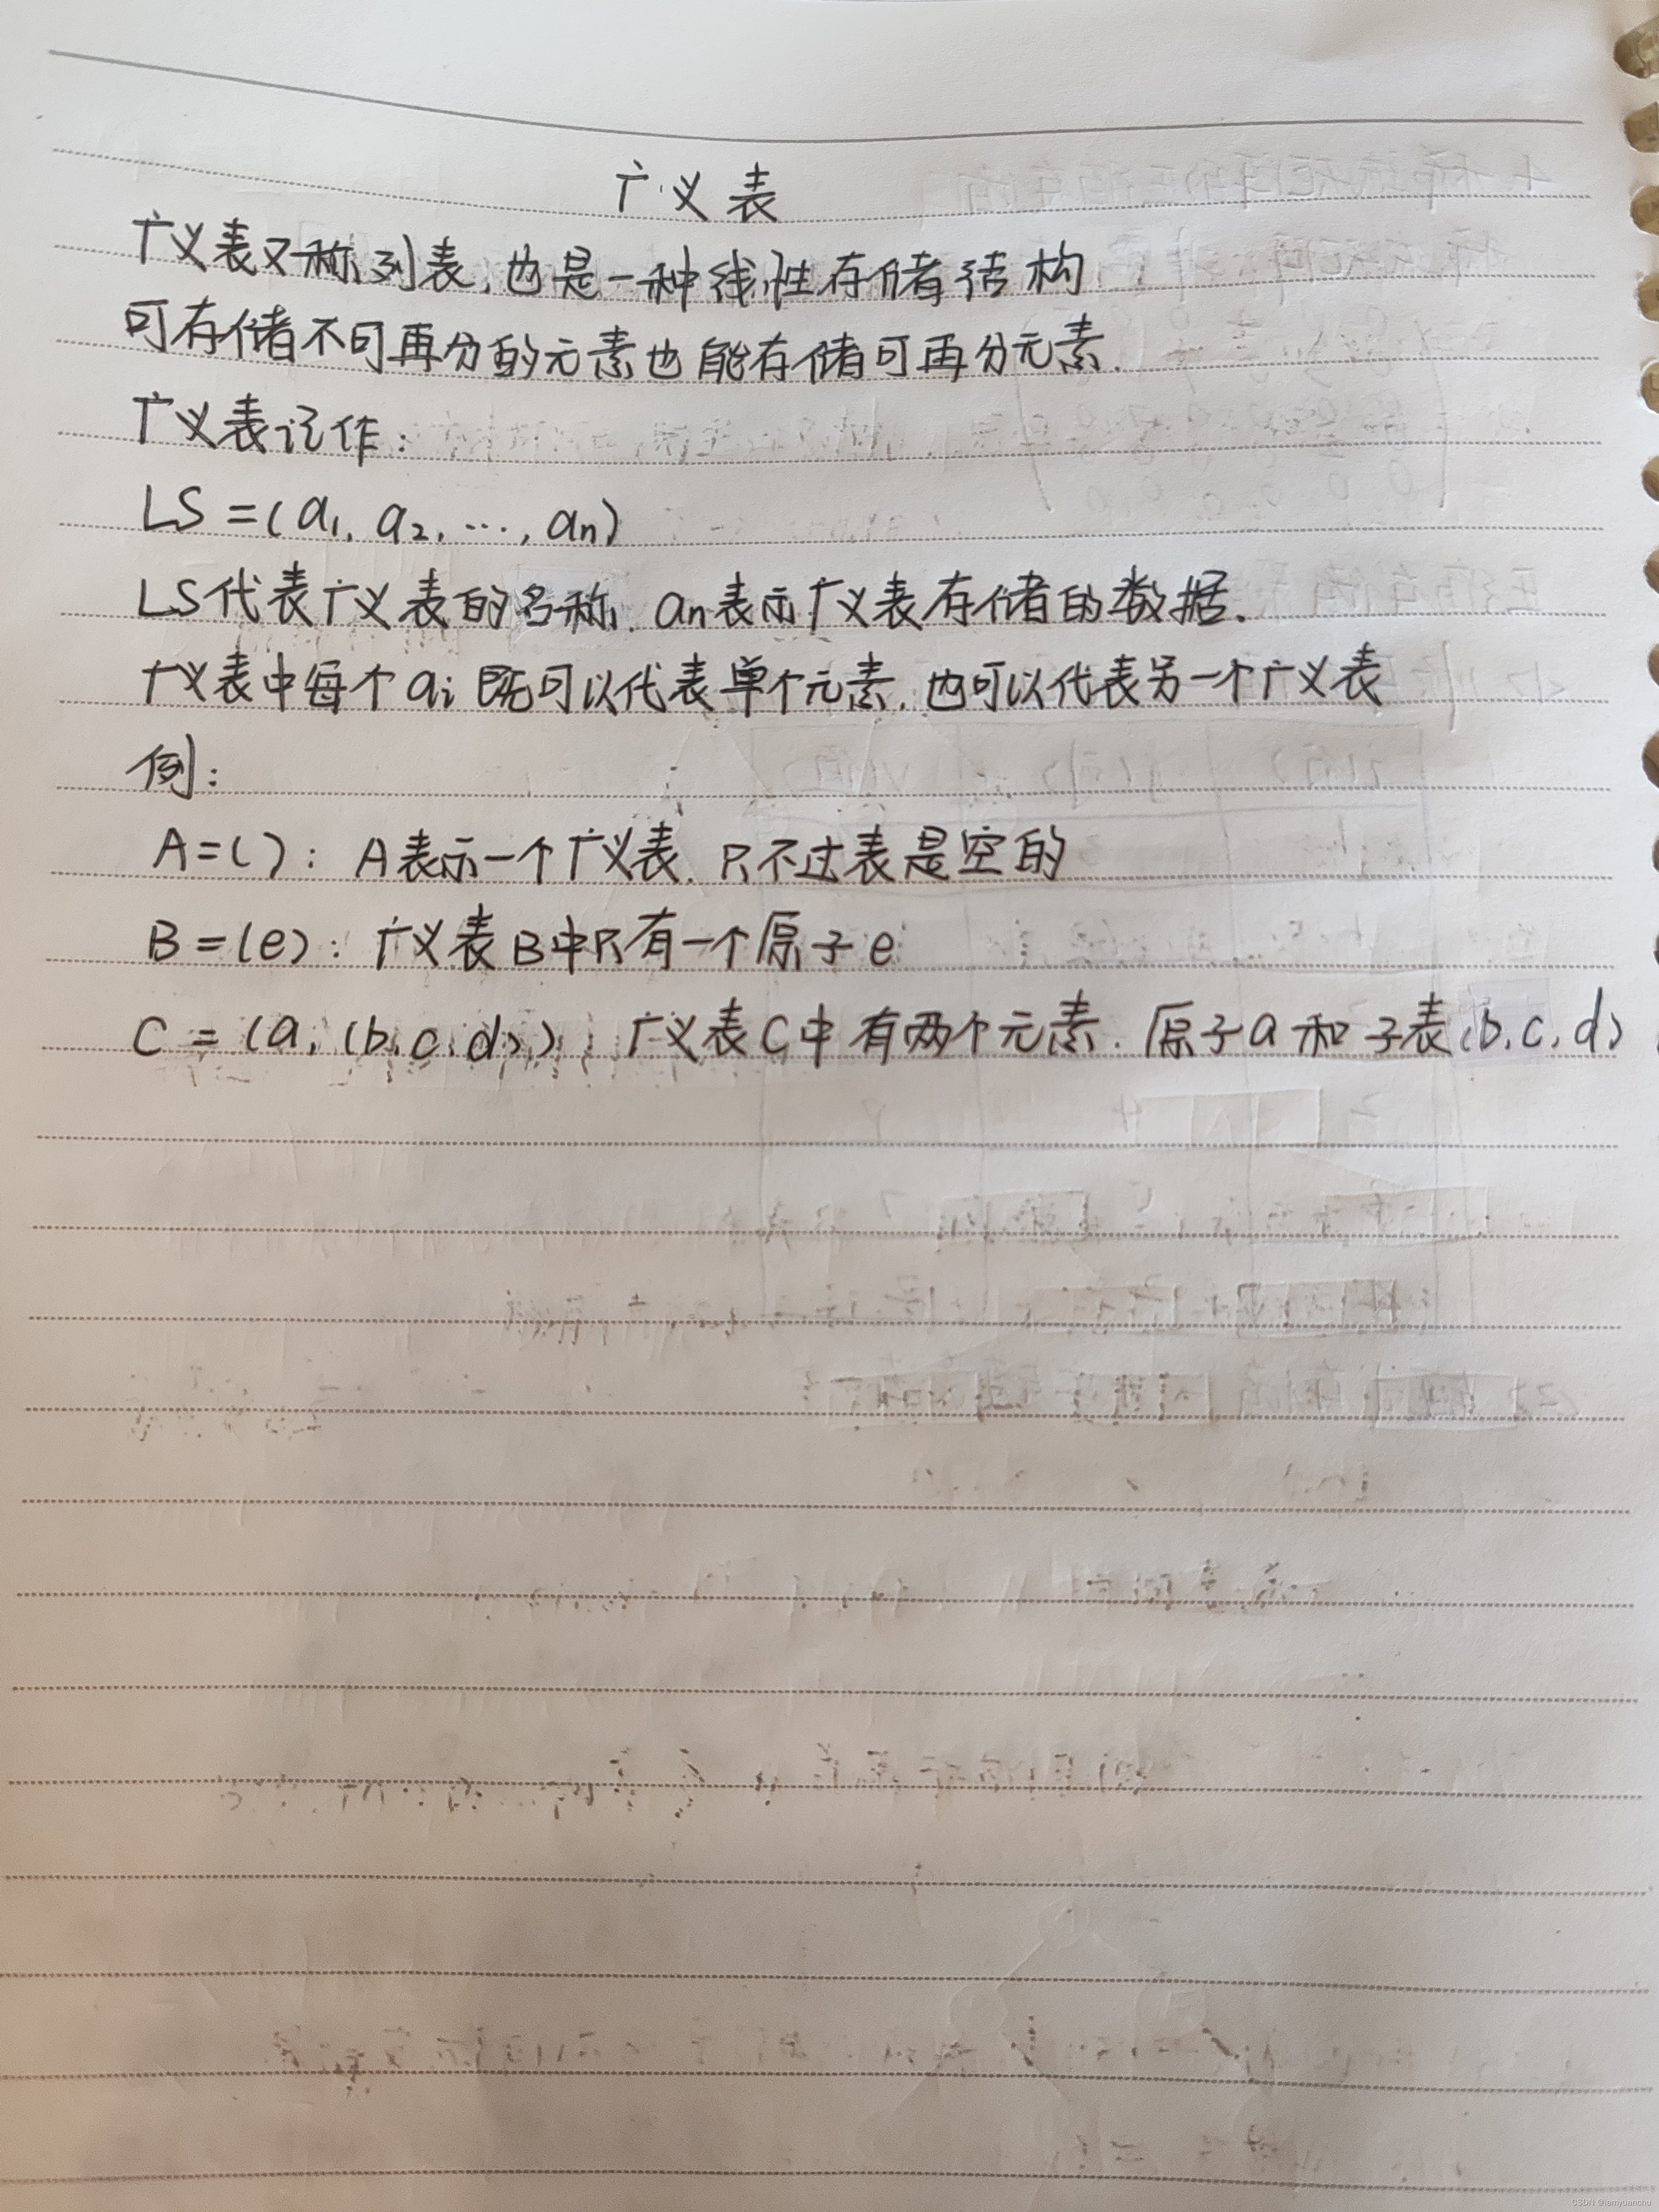 广义表
广义表又称列表,也是一种线性存储结构
可存储不可再分的元素也能存储可再分元素.
广义表记作:
LS=(a₁, a₂, ⋯, an)
LS代表广义表的名称. an表示广义表存储的数据.
广义表中每个ai既可以代表单个元素,也可以代表另一个广义表
例:
A=( ): A表示一个广义表.只不过表是空的
B=(e): 广义表B中只有一个原子e
C=(a,(b,c,d)): 广义表C中有两个元素.原子a和子表(b,c,d)
CSDN @iamyuanchu